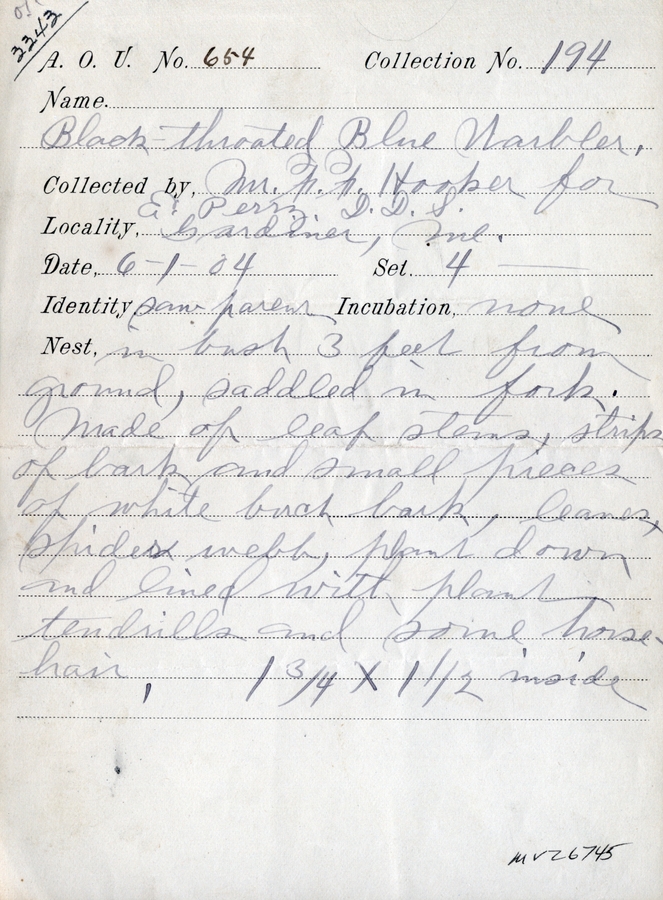 3343
A. O. U. No. 654 Collection No. 194
Name.
Black-throated Blue Warbler,
Collected by, Mr. F. F. Hooper for
E. Perry D. D. S.
Locality, Gardiner, Me.
Date, 6-1-04 Set. 4
Identity, saw parent Incubation, none
Nest, in bush 3 feet from
ground, saddled in fork.
Made of leaf stems, strips
of bark and small pieces
of white birch bark, leaves,
spiders webb, plant down
and lined with plant
tendrills and some horse-
hair, 1 3/4 X 1 1/2 inside
MVZ 6745